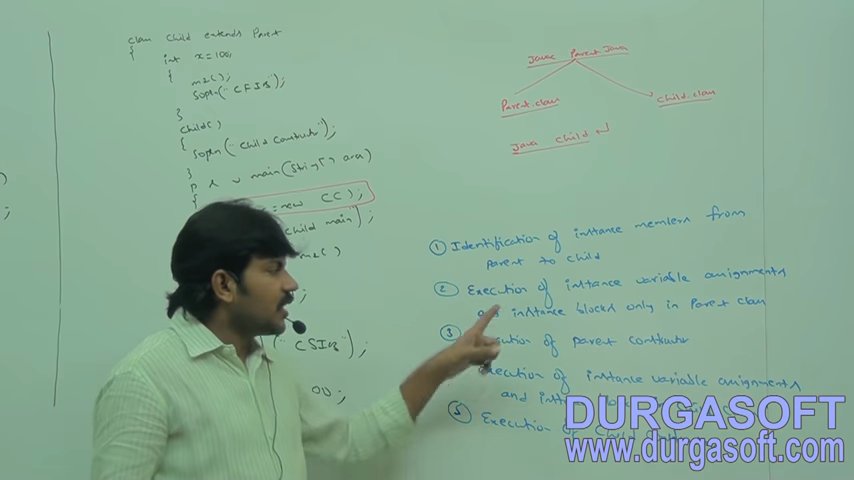 class Child extends Parent
{
int x=100;
{
m2();
Sopln("CFIB");
}
Child()
{
Sopln("Child Constructor");
}
P S V main(String[] args)
{
=new CC);
child main");
m2()
;
("CSIB");
Javac Parent.Java
Parent.class
Child.class
Java Child ↵
① Identification of instance members from
Parent to Child
② Execution of instance variable assignments
and instance blocks only in Parent class
③ of parent constructor
Execution of instance variable assignments
and
⑤ Execution of Child
DURGASOFT
www.durgasoft.com